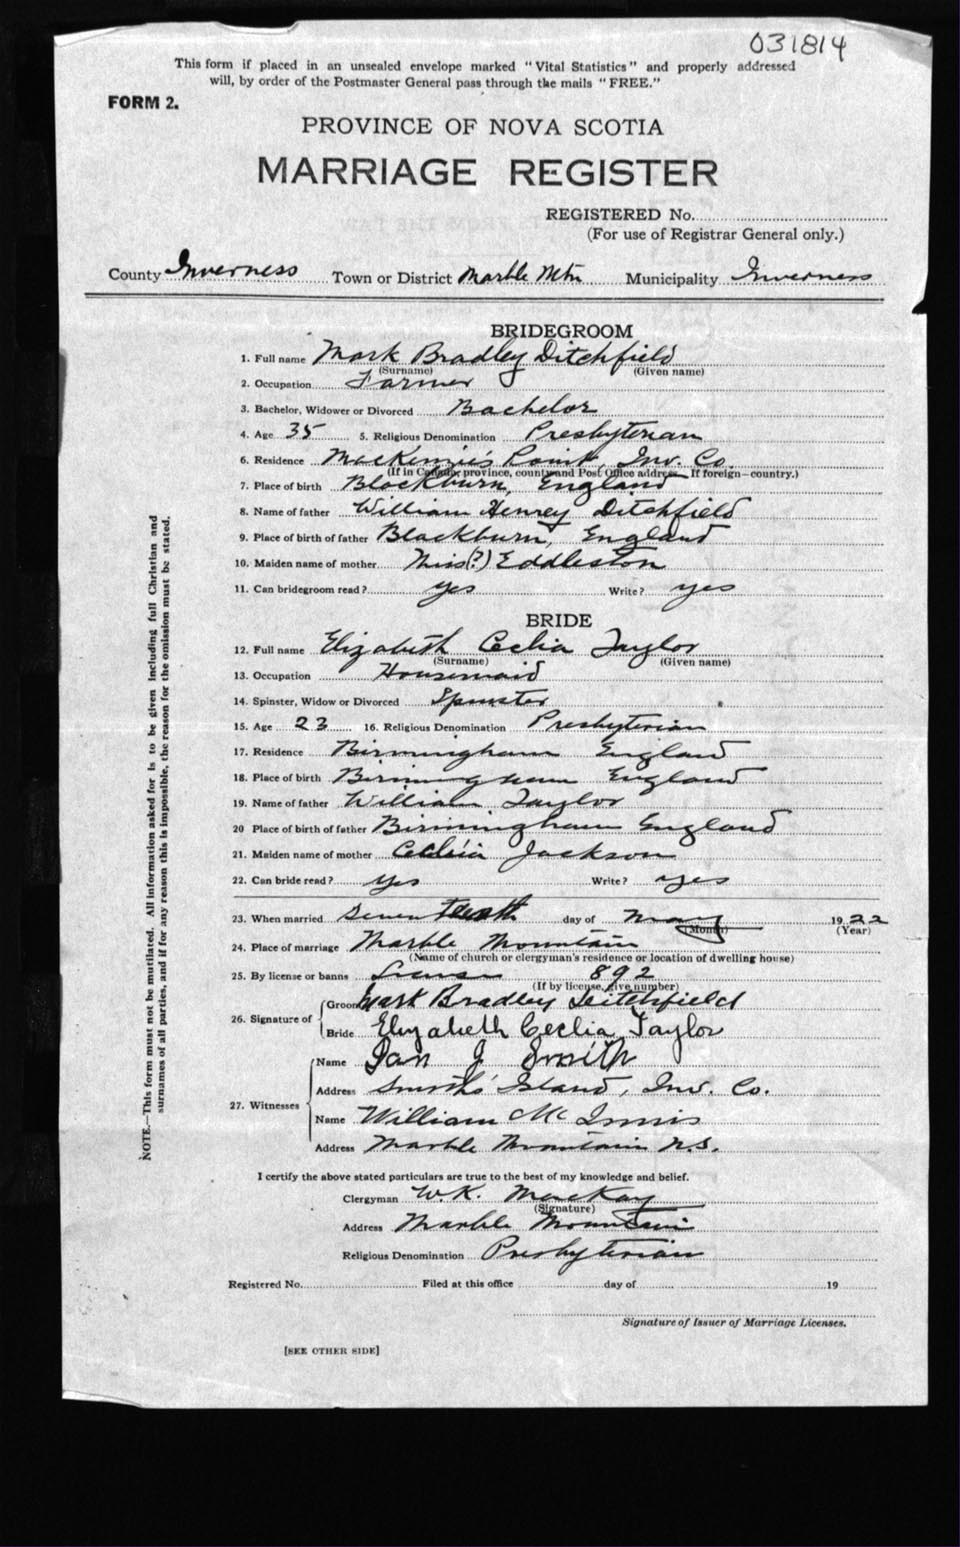 031814
This form if placed in an unsealed envelope marked "Vital Statistics" and properly addressed
will, by order of the Postmaster General pass through the mails "FREE."
FORM 2.
PROVINCE OF NOVA SCOTIA
MARRIAGE REGISTER
REGISTERED No.
(For use of Registrar General only.)
County Inverness Town or District Marble Mtn Municipality Inverness
BRIDEGROOM
1. Full name Mark Bradley Ditchfield
(Surname) (Given name)
2. Occupation Farmer
3. Bachelor, Widower or Divorced Bachelor
4. Age 35 5. Religious Denomination Presbyterian
6. Residence MacKenzie's Point Inv. Co.
(If in Canada, province, county and Post Office address. If foreign—country.)
7. Place of birth Blackburn, England
8. Name of father William Henrey Ditchfield
9. Place of birth of father Blackburn, England
10. Maiden name of mother Miss (?) Eddleston
11. Can bridegroom read? yes Write? yes
BRIDE
12. Full name Elizabeth Cecilia Taylor
(Surname) (Given name)
13. Occupation Housemaid
14. Spinster, Widow or Divorced Spinster
15. Age 23 16. Religious Denomination Presbyterian
17. Residence Birmingham England
18. Place of birth Birmingham England
19. Name of father William Taylor
20 Place of birth of father Birmingham England
21. Maiden name of mother Jackson
22. Can bride read? yes Write? yes
23. When married day of May 1922
(Month) (Year)
24. Place of marriage Marble Mountain
(Name of church or clergyman's residence or location of dwelling house)
25. By license or banns License 892
(If by license, give number)
26. Signature of
Groom Mark Bradley Ditchfield
Bride Elizabeth Cecilia Taylor
27. Witnesses
Name Ian J Smith
Address Smith's Island, Inv. Co.
Name William McInnis
Address Marble Mountain N.S.
I certify the above stated particulars are true to the best of my knowledge and belief.
Clergyman W.K. MacKay
(Signature)
Address Marble Mountain
Religious Denomination Presbyterian
Registered No. Filed at this office day of 19
Signature of Issuer of Marriage Licenses.
[SEE OTHER SIDE]
NOTE.—This form must not be mutilated. All information asked for is to be given including full Christian and
surnames of all parties, and if for any reason this is impossible, the reason for the omission must be stated.